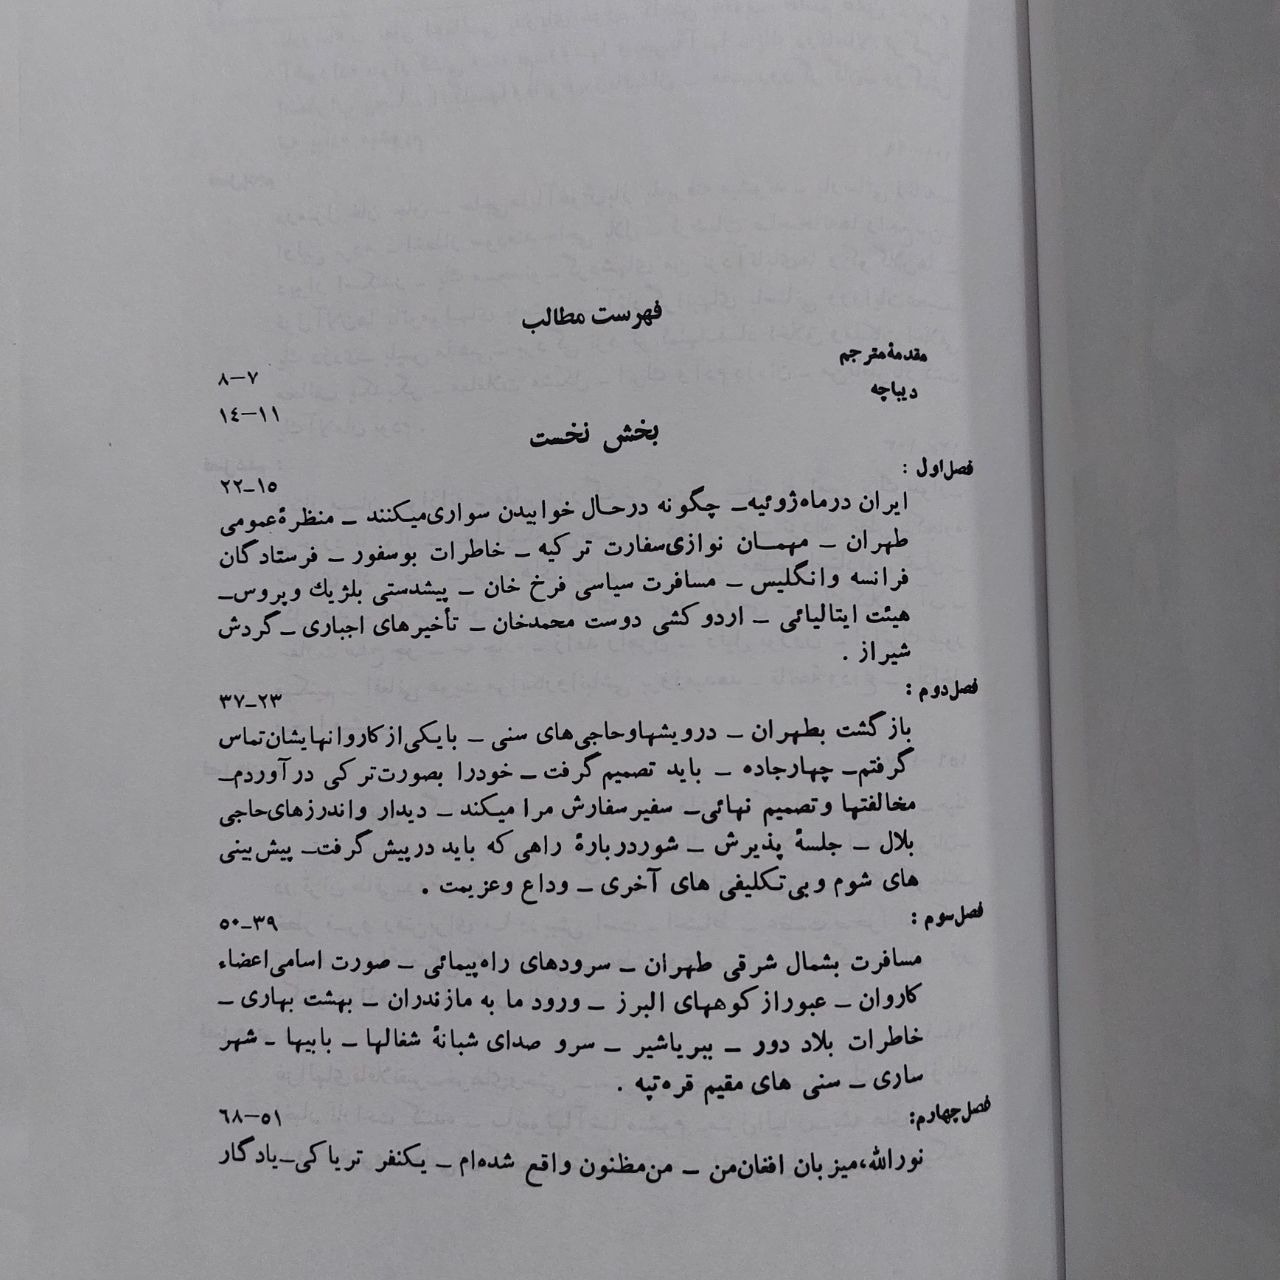 فهرست مطالب
مقدمهٔ مترجم ۷–۸
دیباچه ۱۱–۱٤
بخش نخست
فصل اول : ۱۵–۲۲
ایران در ماه ژوئیه – چگونه در حال خوابیدن سواری میکنند – منظرهٔ عمومی
طهران – مهمان نوازی سفارت ترکیه – خاطرات بوسفور – فرستادگان
فرانسه و انگلیس – مسافرت سیاسی فرخ خان – پیشدستی بلژیك و پروس –
هیئت ایتالیائی – اردو کشی دوست محمدخان – تأخیرهای اجباری – گردش
شیراز .
فصل دوم : ۲۳–۳۷
بازگشت بطهران – درویشها و حاجی‌های سنی – با یکی از کاروانهایشان تماس
گرفتم – چهار جاده – باید تصمیم گرفت – خود را بصورت ترکی در آوردم –
مخالفتها و تصمیم نهائی – سفیر سفارش مرا میکند – دیدار و اندرزهای حاجی
بلال – جلسهٔ پذیرش – شور دربارهٔ راهی که باید در پیش گرفت – پیش بینی
های شوم و بی تکلیفی های آخری – وداع و عزیمت .
فصل سوم : ۳۹–۵۰
مسافرت بشمال شرقی طهران – سرودهای راه پیمائی – صورت اسامی اعضاء
کاروان – عبور از کوههای البرز – ورود ما به مازندران – بهشت بهاری –
خاطرات بلاد دور – ببر یا شیر – سر و صدای شبانهٔ شغالها – بابیها – شهر
ساری – سنی های مقیم قره تپه .
فصل چهارم: ۵۱–٦۸
نورالله، میزبان افغان من – من مظنون واقع شده‌ام – یکنفر تریاکی – یادگار